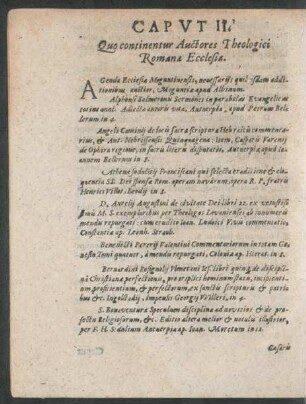 CAPVT II.
Quo continentur Auctores Theologici
Romanæ Ecclesiæ.
AGenda Ecclesiæ Moguntinensis, necessariis quibusdam addi-
tionibus auctior, Moguntiæ apud Albinum.
Alphonsi Salmeronis Sermones in parabolas Euangelicas
totius anni: Adiecta autoris vita, Antuerpiæ, apud Petrum Bel-
lerum in 4.
Angeli Caninij de locis sacræ scripturæ Hebraicis commentari-
um, & Ant. Nebrissensis Quinquagena: item, Casparis Varrerij
de Ophira regione, in sacris literis disputatio, Antuerpiæ apud Io-
annem Bellerum in 8.
Athenæ sodalitij Franciscani qui selecta traditione & elo-
quentia SS. Dei sponsa nom. operam navarunt, opera R. P. fratris
Henrici Villot. Leodij in 8.
D. Aurelij Augustini de civitate Dei libri 22. ex vetustiss
simis M. S. exemplaribus per Theologos Lovanienses ab innumeris
mendis repurgati: cum eruditiss. Ioan. Ludovici Vivis commentariis,
Constantiæ ap. Leonh. Straub.
Benedicti Pererij Valentini Commentariorum in totam Ge-
nesin Tomi quatuor, à mendis repurgati, Coloniæ ap. Hierat. in 8.
Bernardini Rosignolij Vberetani Soc. libri quinq; de discipli-
na Christianæ perfectionis, pro triplici hominum statu, incipienti-
um, proficientium, & perfectorum, ex sanctis scripturis & patri-
bus &c. Ingolstadij, impensis Georgij Willeri, in 4.
S. Bonaventuræ Speculum disciplinæ ad novitios & de pro-
fectu Religiosorum, &c. Editio altera melior & notulis illustrior,
per F. H. Sedulium Antuerpiæ ap. Ioan. Moretum in 12.
Cæsaris